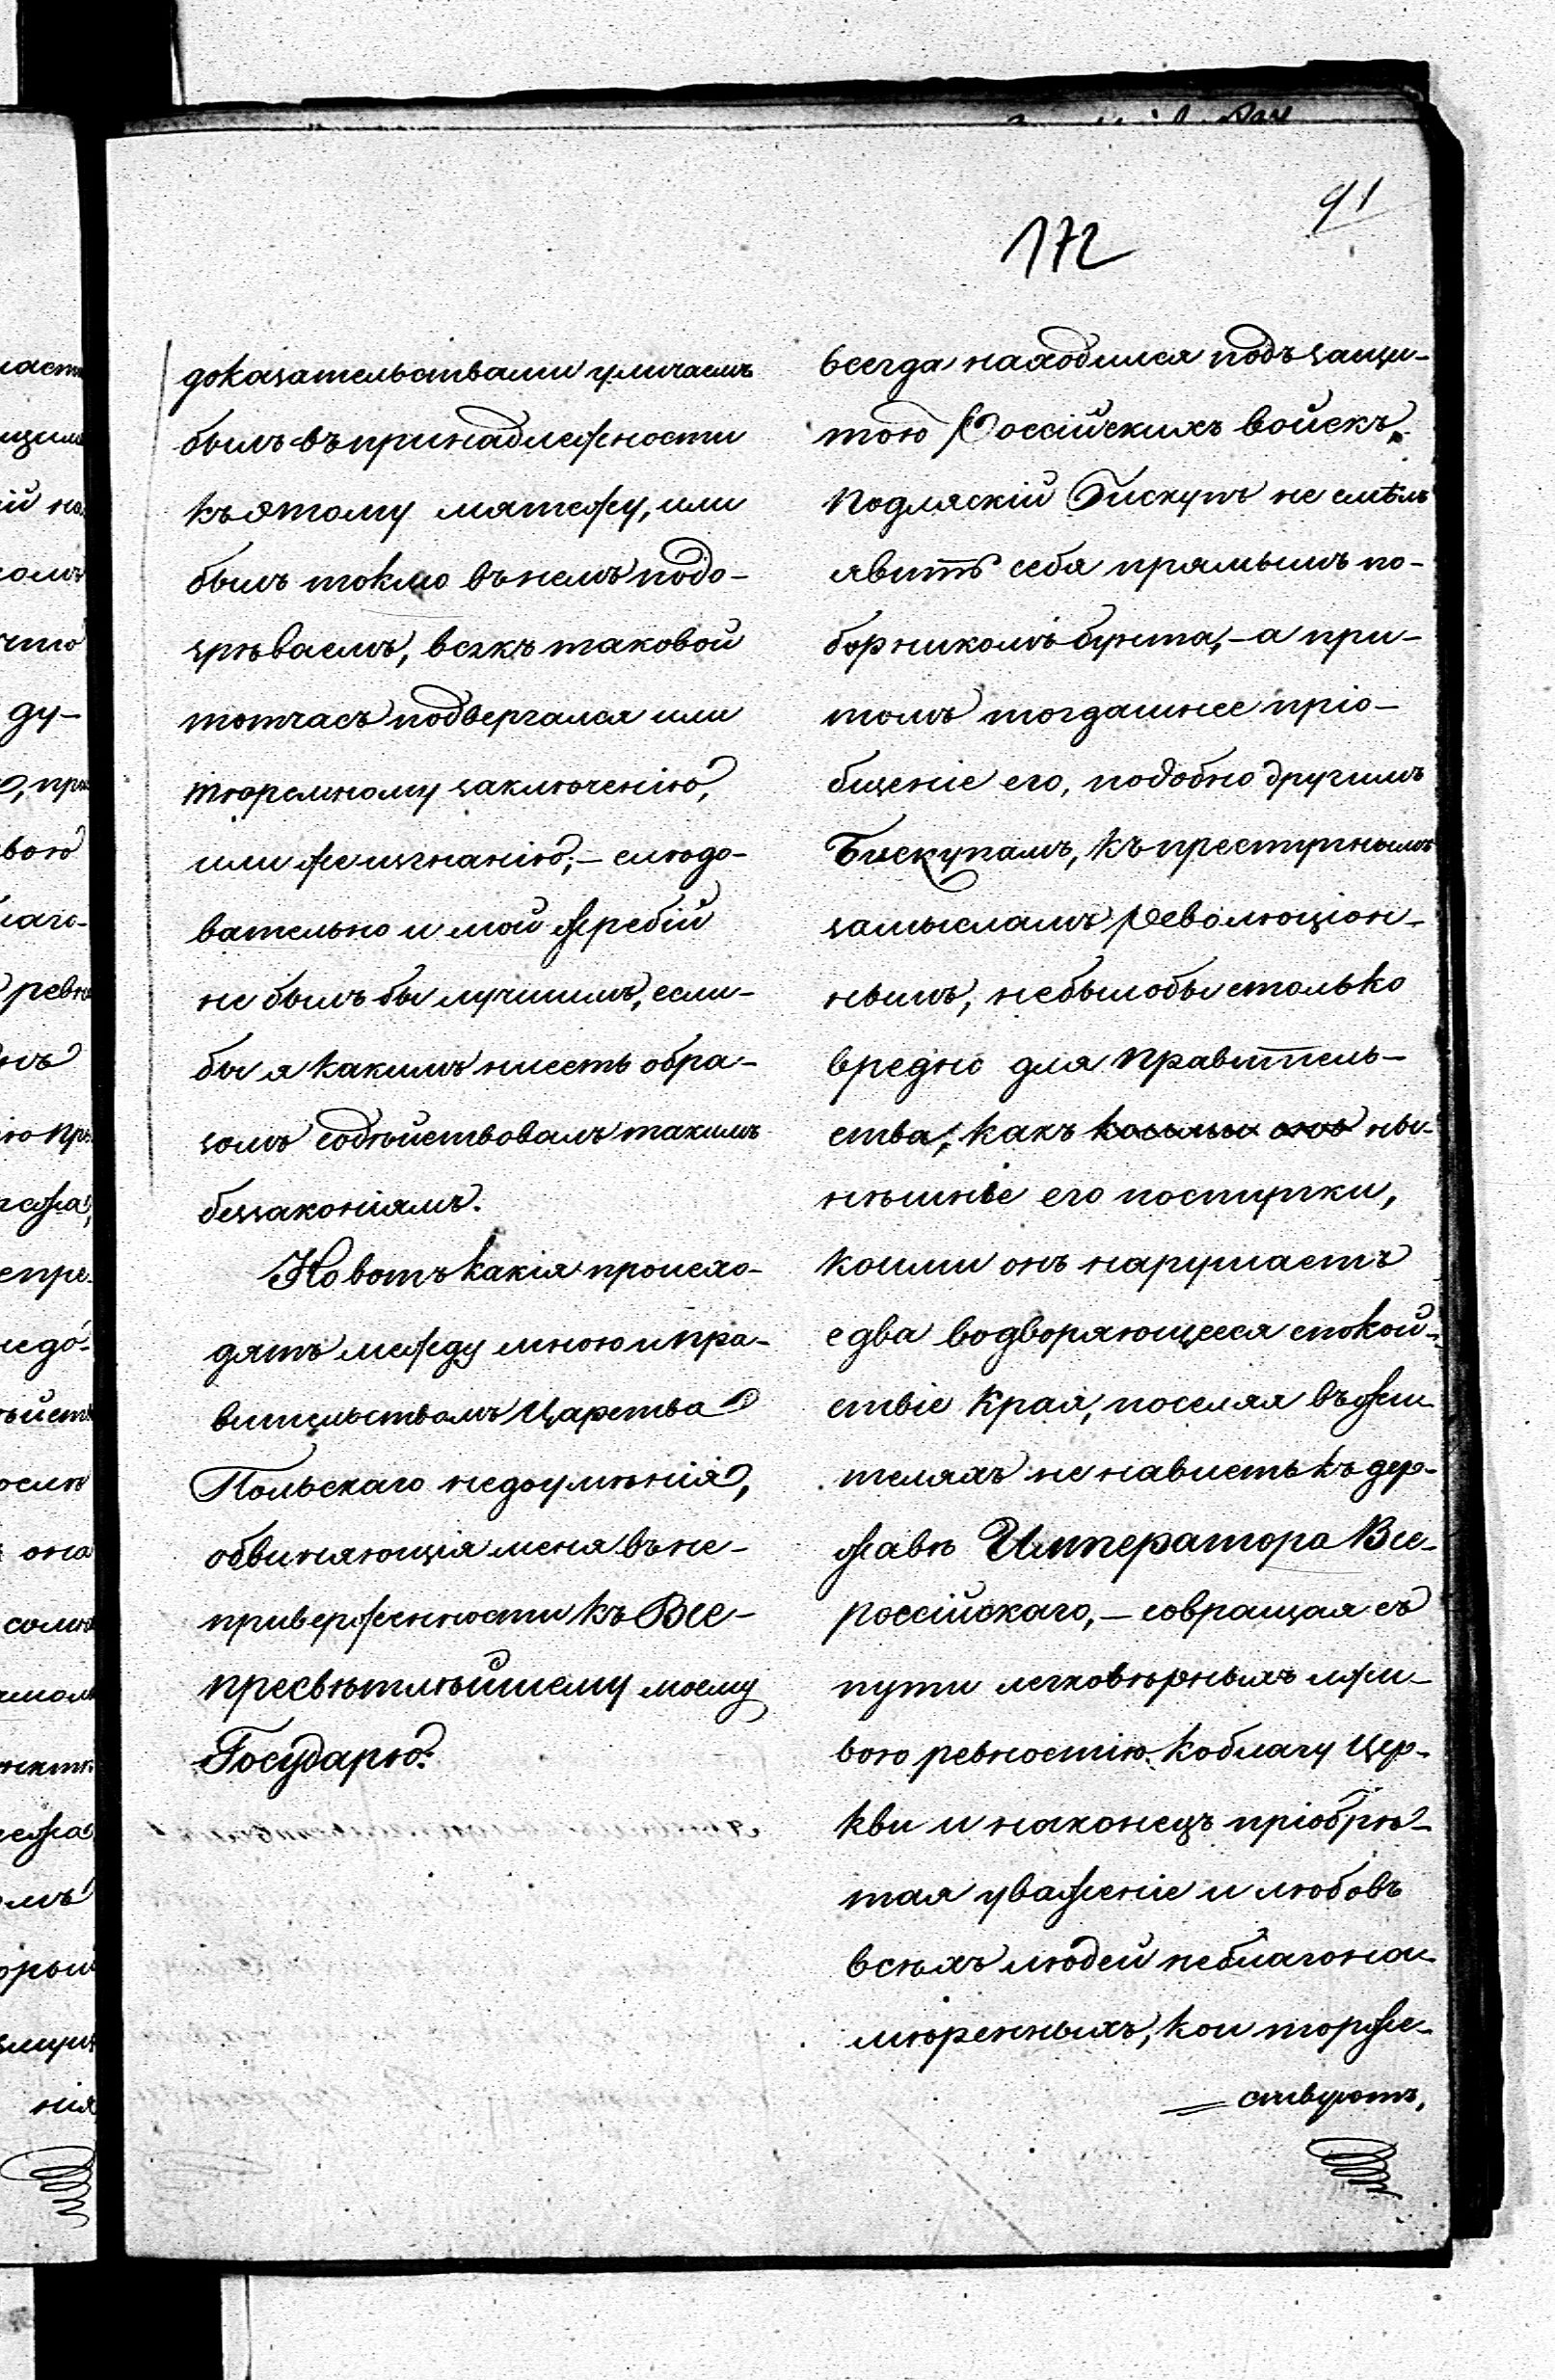 91
172
доказательствами уличаемъ
былъ въ принадлежности
къ этому мятежу, или
былъ токмо въ немъ подо-
зрѣваемъ, всякъ таковой
тотчасъ подвергался или
тюремному заключенію,
или же изгнанію; — слѣдо-
вательно и мой жребій
не былъ бы лучшимъ, если-
бы я какимъ нисеть обра-
зомъ содѣйствовалъ такимъ
беззаконіямъ.
Но вотъ какія происхо-
дятъ между мною и пра-
вительствомъ Царства
Польскаго недоумѣнія,
обвиняющія меня въ не-
приверженности къ Все-
пресвѣтлѣйшему моему
Государю.
всегда находился подъ защи-
тою Россійскихъ войскъ.
Подляскій Бискупъ не смѣлъ
явить себя прямымъ по-
борникомъ бунта, — а при-
томъ тогдашнее пріо-
бщеніе его, подобно другимъ
Бискупамъ, къ преступнымъ
замысламъ революціон-
нымъ, не было бы столько
вредно для Правитель-
ства, какъ ны-
нѣшніе его поступки,
коими онъ нарушаетъ
едва водворяющееся спокой-
ствіе Края, поселяя въ жи-
теляхъ ненависть къ дер-
жавѣ Императора Все-
россійскаго, — совращая съ
пути легковѣрныхъ лжи-
вою ревностію ко благу Цер-
кви и наконецъ пріобрѣ-
тая уваженіе и любовь
всѣхъ людей неблагона-
мѣренныхъ, кои торже-
= ствуютъ,